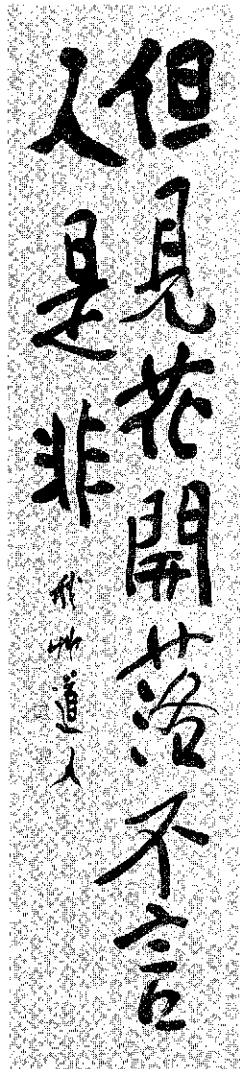 但見花開落不言
人是非
秋艸道人